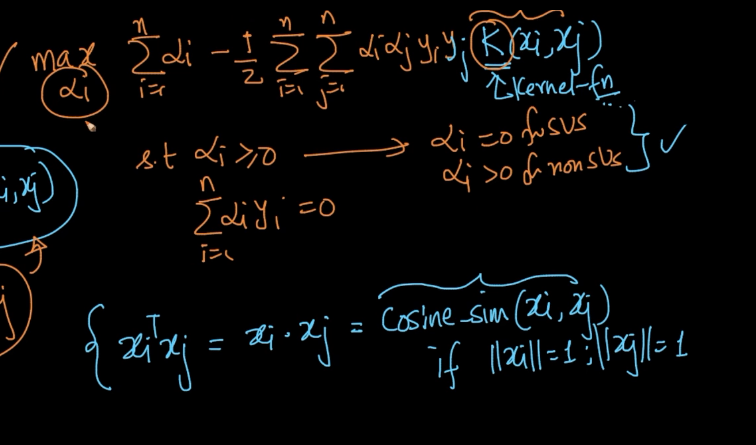 max αi Σ(i=1 to n) αi - 1/2 Σ(i=1 to n) Σ(j=1 to n) αi αj yi yj K(xi, xj)
↑ kernel-fn ...
s.t αi ≥ 0 → αi = 0 for SVs
αi > 0 for non SVs ✓
Σ(i=1 to n) αi yi = 0
i, xj)
j
{ xiᵀxj = xi · xj = cosine-sim(xi, xj)
if ||xi|| = 1 ; ||xj|| = 1